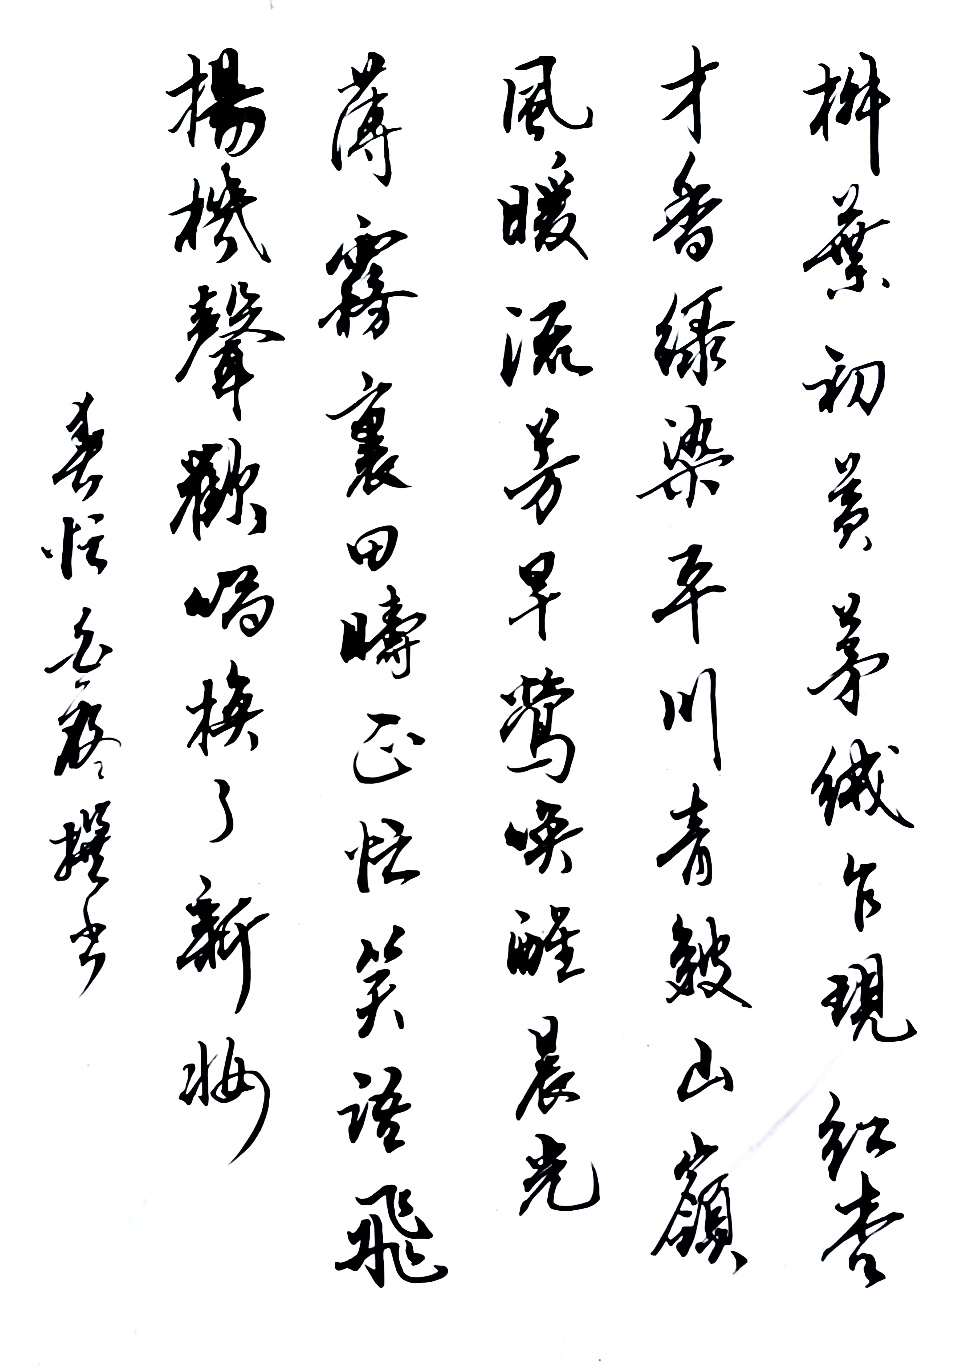 柳葉初黃茅絨乍現紅杏
才香綠染平川青皴山嶺
風暖流芳早鶯喚醒晨光
薄霧裏田疇正忙笑語飛
揚機聲歡唱換了新妝
春忙 撰書